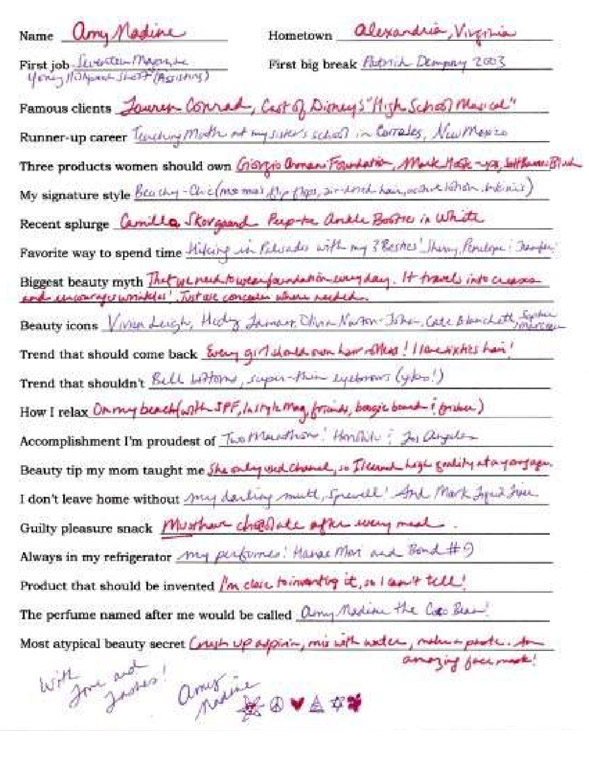 Name Amy Nadine Hometown Alexandria, Virginia
First job Seventeen Magazine First big break Patrick Dempsey 2003
(Assisting)
Famous clients Lauren Conrad, Cast of Disney's "High School Musical"
Runner-up career Teaching Math at my sister's school in Corrales, New Mexico
Three products women should own Giorgio Armani Foundation, Mark
My signature style Beachy-Chic (flip flops, air-dried hair
Recent splurge Camilla Skovgaard Peep-toe Ankle Booties in White
Favorite way to spend time Hiking in Palisades with my 3 Besties! Penelope & Jennifer!
Biggest beauty myth That we need to wear foundation every day. It travels into creases
and encourages wrinkles! Just use concealer where needed.
Beauty icons Vivien Leigh, Hedy Lamarr, Olivia Newton-John, Cate Blanchett, Sophie Marceau
Trend that should come back Every girl should own hair rollers! I love sixties hair!
Trend that shouldn't Bell bottoms, super-thin eyebrows
How I relax On my beach (with SPF, InStyle Mag, friends, boogie board & frisbee)
Accomplishment I'm proudest of Two Marathons! Honolulu & Los Angeles
Beauty tip my mom taught me She only used Chanel, so I learned high quality at a young age.
I don't leave home without my darling mutt, Sprewell! And Mark
Guilty pleasure snack Must have chocolate after every meal.
Always in my refrigerator my perfumes! Hanae Mori and Bond #9
Product that should be invented I'm close to inventing it, so I can't tell!
The perfume named after me would be called Amy Nadine the Coco Bean!
Most atypical beauty secret Crush up aspirin, mix with water, make a paste. An
amazing face mask!
With
Love and
Lashes!
Amy
Nadine